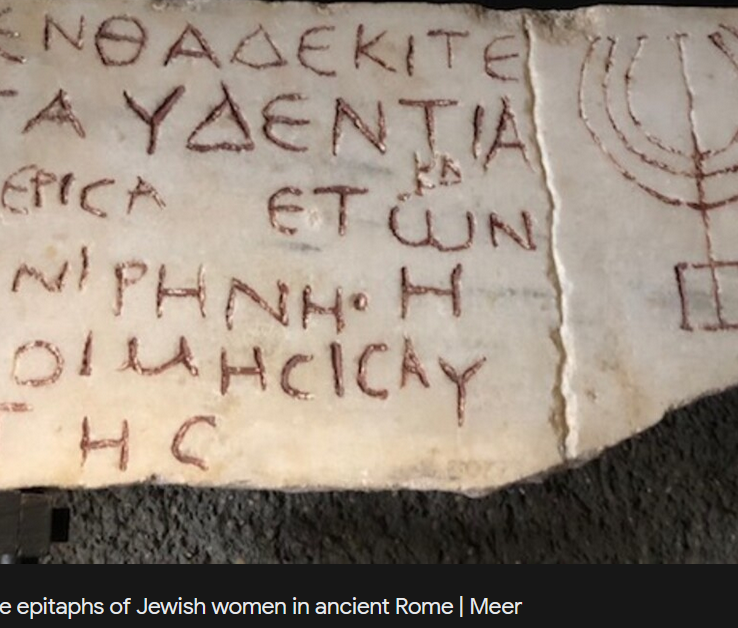 ΕΝΘΑΔΕΚΙΤΕ
ΓΑΥΔΕΝΤΙΑ
ΕΡΙCΑ ΕΤωΝ ΚΔ
ΝΙΡΗΝΗ•Η
ΟΙΜΗCΙCΑΥ
ΤΗC
e epitaphs of Jewish women in ancient Rome | Meer